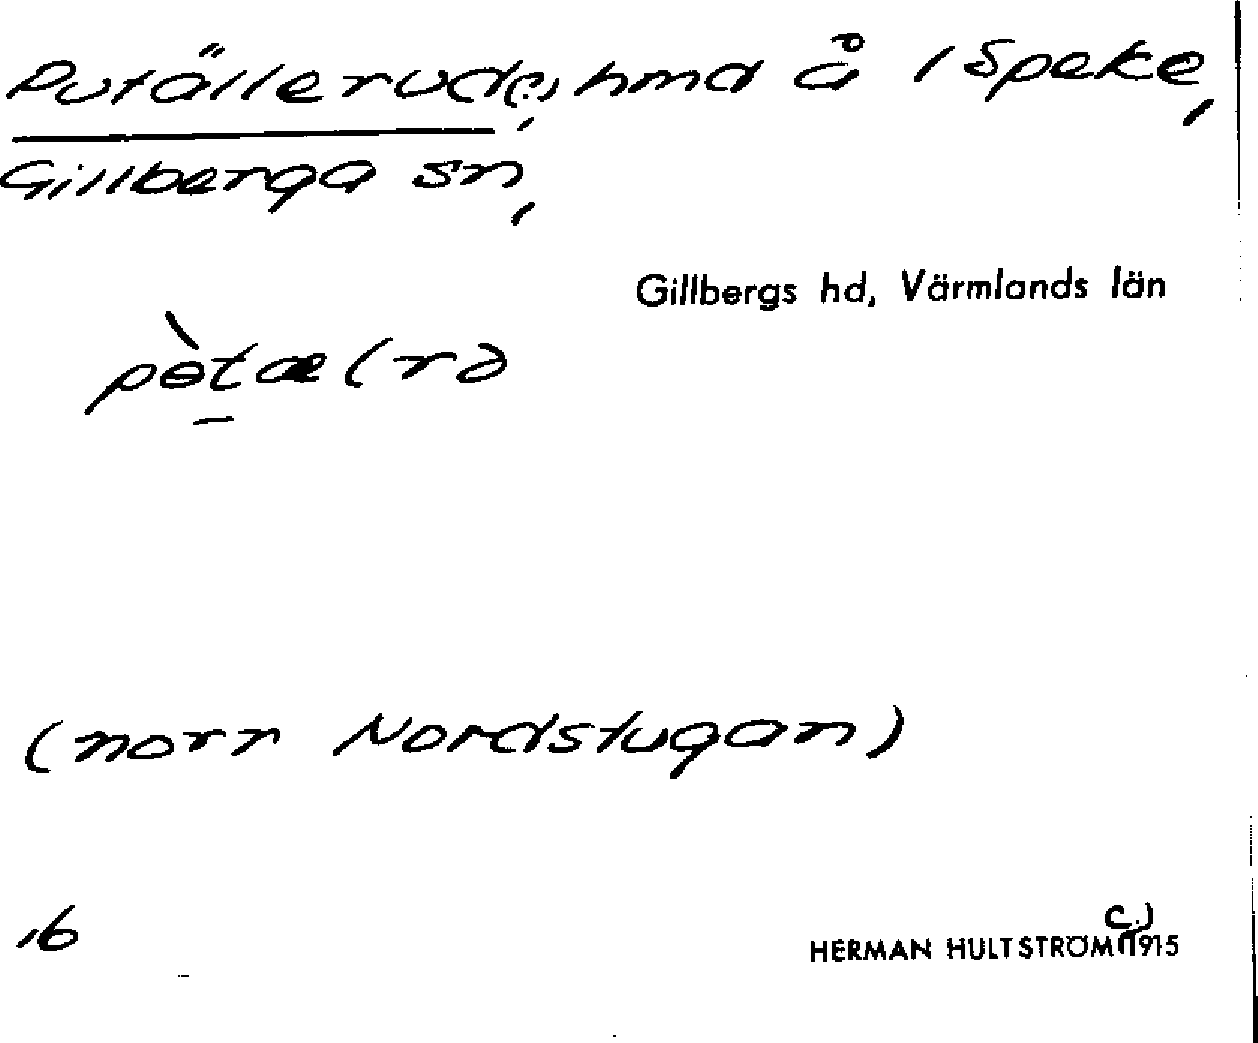 Putällerude(?), hmd å 1 Speke,
Gillberga sn,
Gillbergs hd, Värmlands län
pɵ̀tæ(rə
(norr Nordstugan)
16
HERMAN HULTSTRÖM (c.) 1915